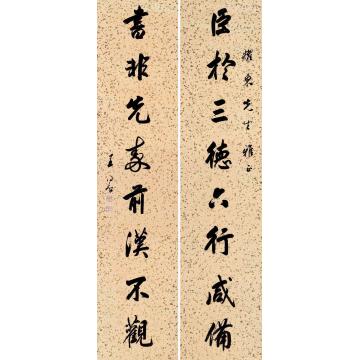 臣於三德六行咸備
耀東先生雅正
書非先秦前漢不觀